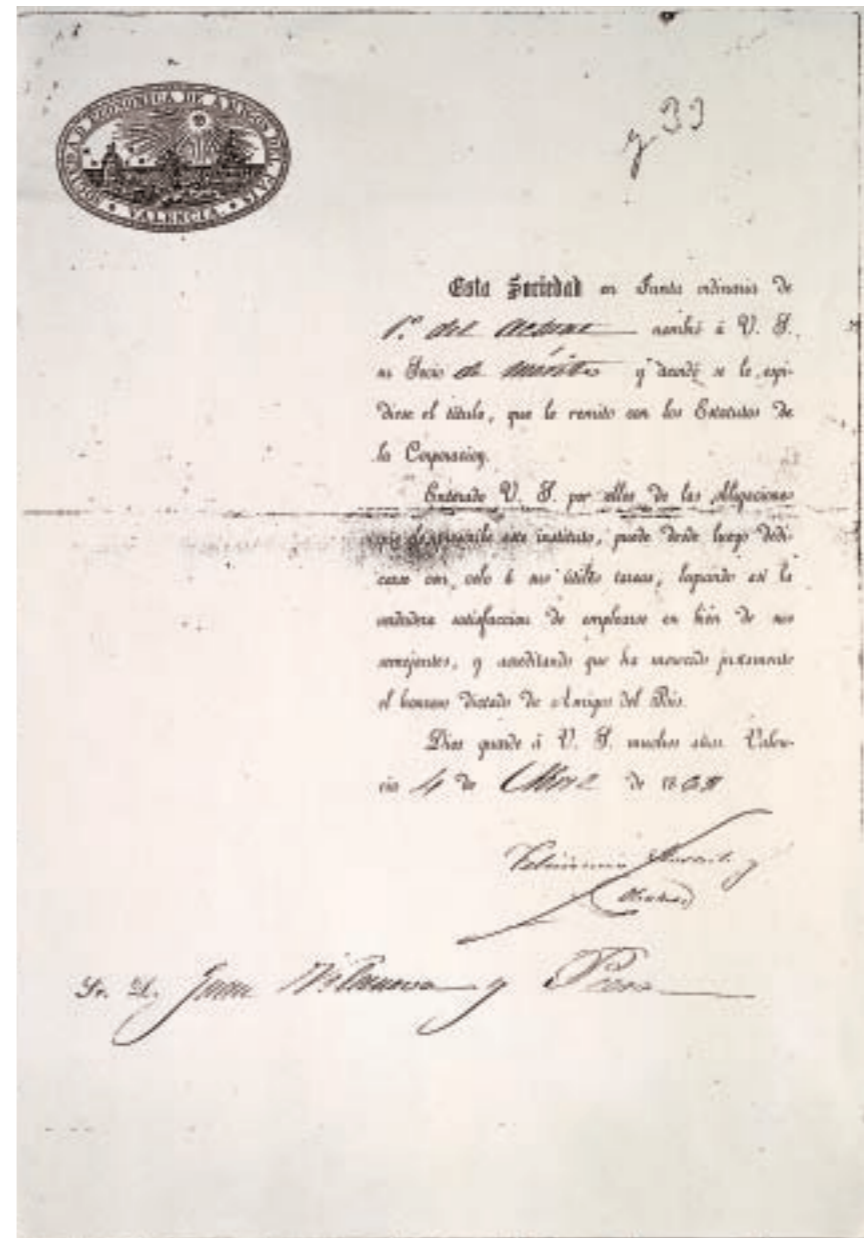 SOCIEDAD ECONOMICA DE AMIGOS DEL PAIS
VALENCIA
y 33
Esta Sociedad en Junta ordinaria de
1.º del actual nombró á V. S.
su Socio de mérito y acordó se le espi-
diese el título, que le remito con los Estatutos de
la Corporacion.
Enterado V. S. por ellos de las obligaciones
este instituto, puede desde luego dedi-
carse con celo á sus útiles tareas, logrando así la
verdadera satisfaccion de emplearse en bien de sus
semejantes, y acreditando que ha merecido justamente
el honroso dictado de Amigo del Pais.
Dios guarde á V. S. muchos años. Valen-
cia 4 de de 18
Sr. D. Juan Vilanova y Piera